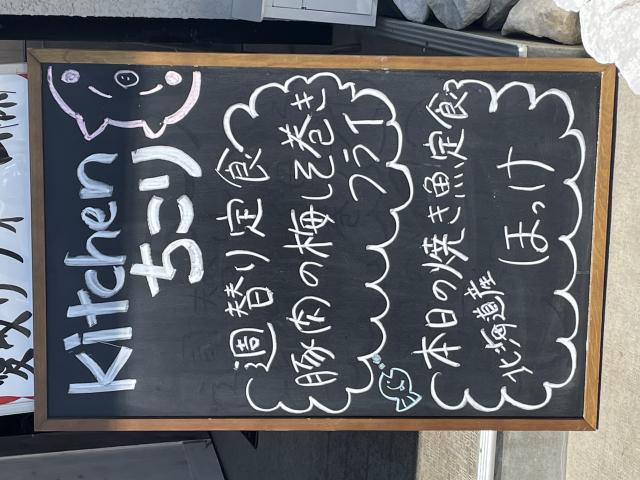 Kitchen
ちこり
週替り定食
豚肉の梅しそ巻き
フライ
本日の焼き魚定食
北海道産
ほっけ